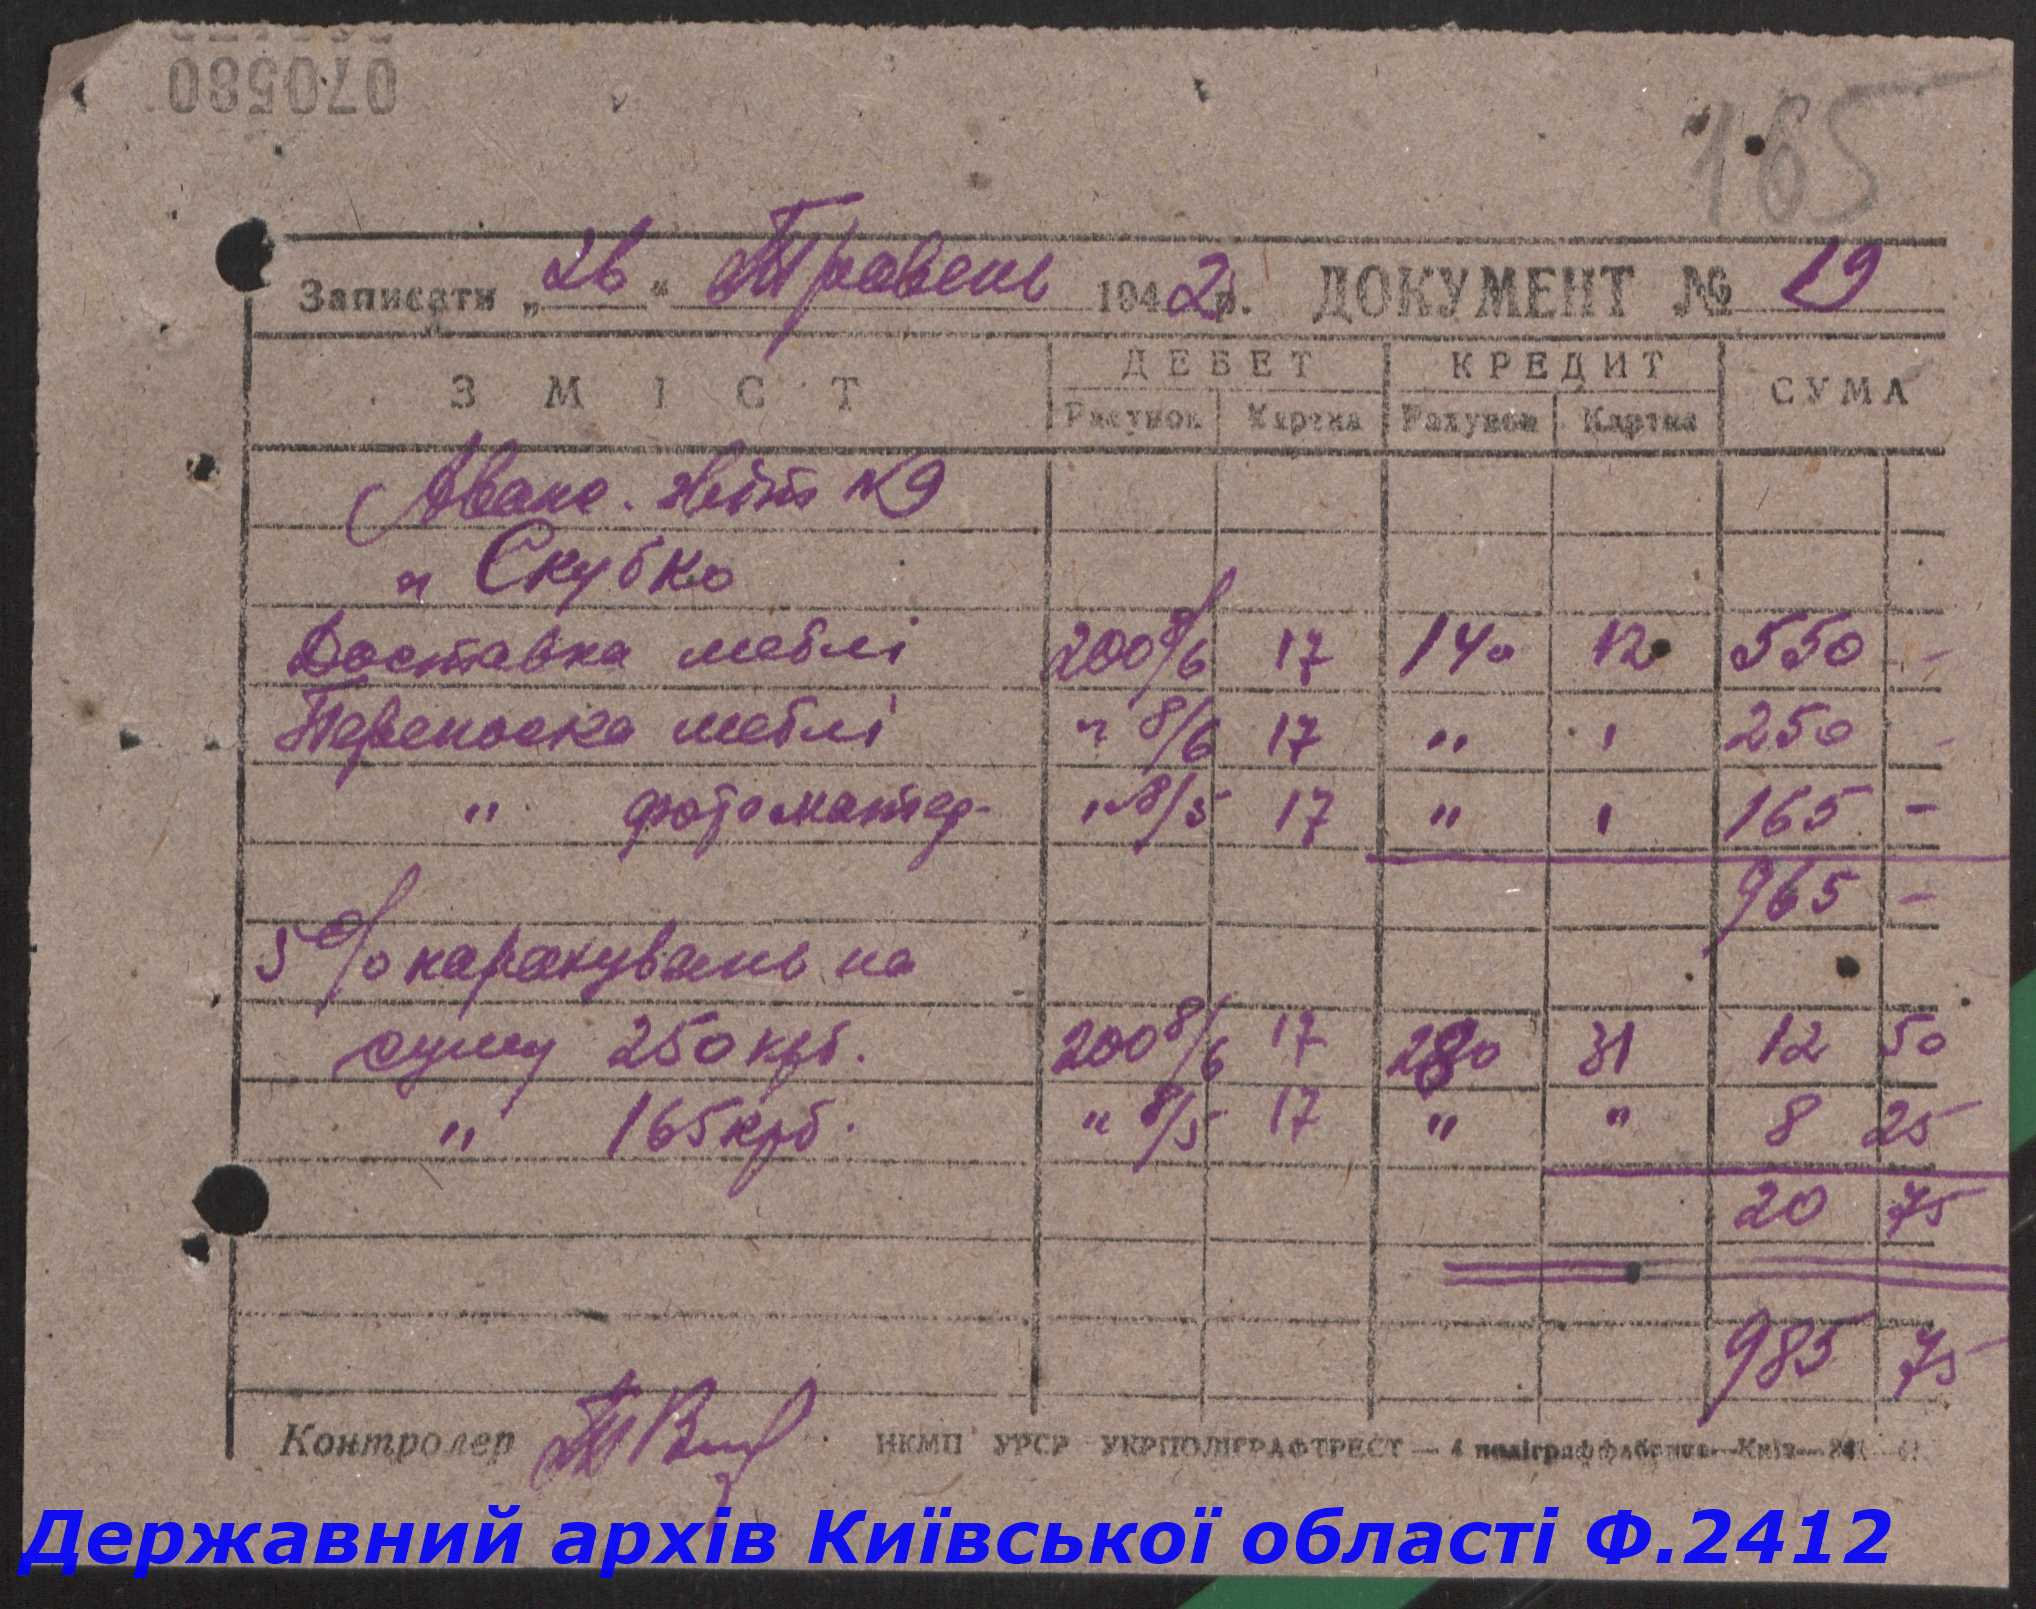 070580
165
Записати „26“ Травень 1942 р. ДОКУМЕНТ № 19
ЗМІСТ ДЕБЕТ КРЕДИТ СУМА
Рахунок Картка Рахунок Картка
Аванс. звіт №9
" Скубко
Доставка меблі 200 8/6 17 140 12 550 -
Переноска меблі " 8/6 17 " " 250 -
" фотоматер. " 8/5 17 " " 165 -
965 -
5% нарахувань на
суму 250 крб. 200 8/6 17 280 31 12 50
" 165 крб. " 8/5 17 " " 8 25
20 75
985 75
Контролер НКМП УРСР УКРПОЛІГРАФТРЕСТ — 4 поліграффабрика — Київ —
Державний архів Київської області Ф.2412